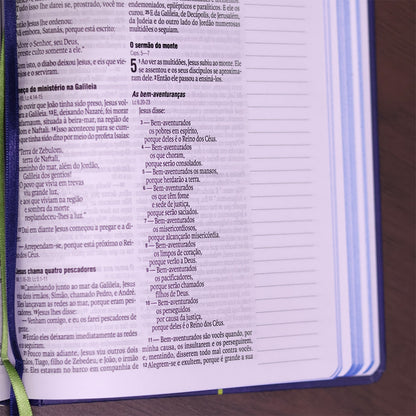 Tudo isso lhe darei, se prostrado, me
lhe ordenou:
Embora, Satanás, porque está escrito:
Adore o Senhor, seu Deus,
preste culto somente a ele.
tem isto, o diabo deixou Jesus, e eis que vie-
os e o serviram.
meço do ministério na Galileia
ouvir que João tinha sido preso, Jesus vol-
a Galileia. E, deixando Nazaré, foi morar
farnaum, situada à beira-mar, na região de
m e Naftali. Isso aconteceu para se cum-
que tinha sido dito por meio do profeta Isaías:
Terra de Zebulom,
terra de Naftali,
caminho do mar, além do Jordão,
Galileia dos gentios!
O povo que vivia em trevas
viu grande luz,
e aos que viviam na região
e sombra da morte
resplandeceu-lhes a luz.
Daí em diante Jesus começou a pregar e a di-
— Arrependam-se, porque está próximo o Rei-
dos Céus.
Jesus chama quatro pescadores
Caminhando junto ao mar da Galileia, Jesus
dois irmãos: Simão, chamado Pedro, e André.
Eles lançavam as redes ao mar, porque eram pes-
Jesus lhes disse:
— Venham comigo, e eu os farei pescadores de
gente.
Então eles deixaram imediatamente as redes
seguiram.
Pouco mais adiante, Jesus viu outros dois
Tiago, filho de Zebedeu, e João, irmão de
Eles estavam no barco em companhia de
endemoniados, epilépticos e paralíticos. E ele os
curou. 25 E da Galileia, de Decápolis, de Jerusalém,
da Judeia e do outro lado do Jordão numerosas
multidões o seguiam.
O sermão do monte
Caps. 5—7
5 1 Ao ver as multidões, Jesus subiu ao monte. Ele
se assentou e os seus discípulos se aproxima-
ram dele. 2 Então ele passou a ensiná-los.
As bem-aventuranças
Lc 6.20-23
Jesus disse:
3 — Bem-aventurados
os pobres em espírito,
porque deles é o Reino dos Céus.
4 — Bem-aventurados
os que choram,
porque serão consolados.
5 — Bem-aventurados os mansos,
porque herdarão a terra.
6 — Bem-aventurados
os que têm fome
e sede de justiça,
porque serão saciados.
7 — Bem-aventurados
os misericordiosos,
porque alcançarão misericórdia.
8 — Bem-aventurados
os limpos de coração,
porque verão a Deus.
9 — Bem-aventurados
os pacificadores,
porque serão chamados
filhos de Deus.
10 — Bem-aventurados
os perseguidos
por causa da justiça,
porque deles é o Reino dos Céus.
11 — Bem-aventurados são vocês quando, por
minha causa, os insultarem e os perseguirem,
e, mentindo, disserem todo mal contra vocês.
12 Alegrem-se e exultem, porque é grande a sua